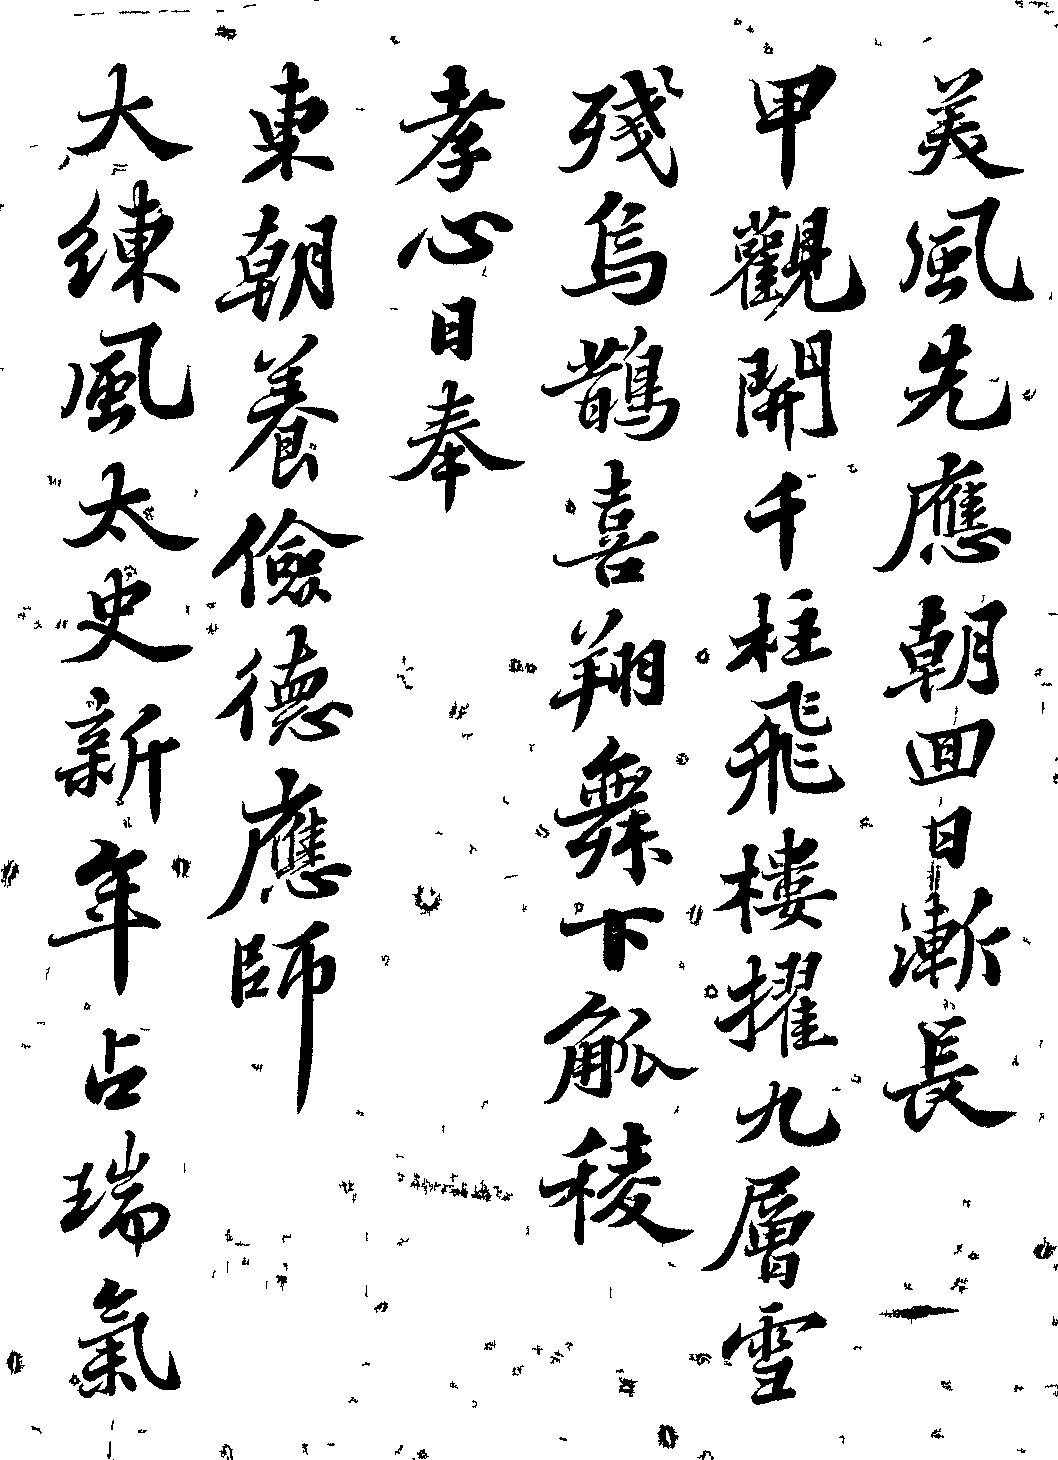 美風先應朝回日漸長
甲觀開千柱飛樓擢九層雪
殘烏鵲喜翔舞下觚稜
孝心日奉
東朝養儉德應師
大練風太史新年占瑞氣